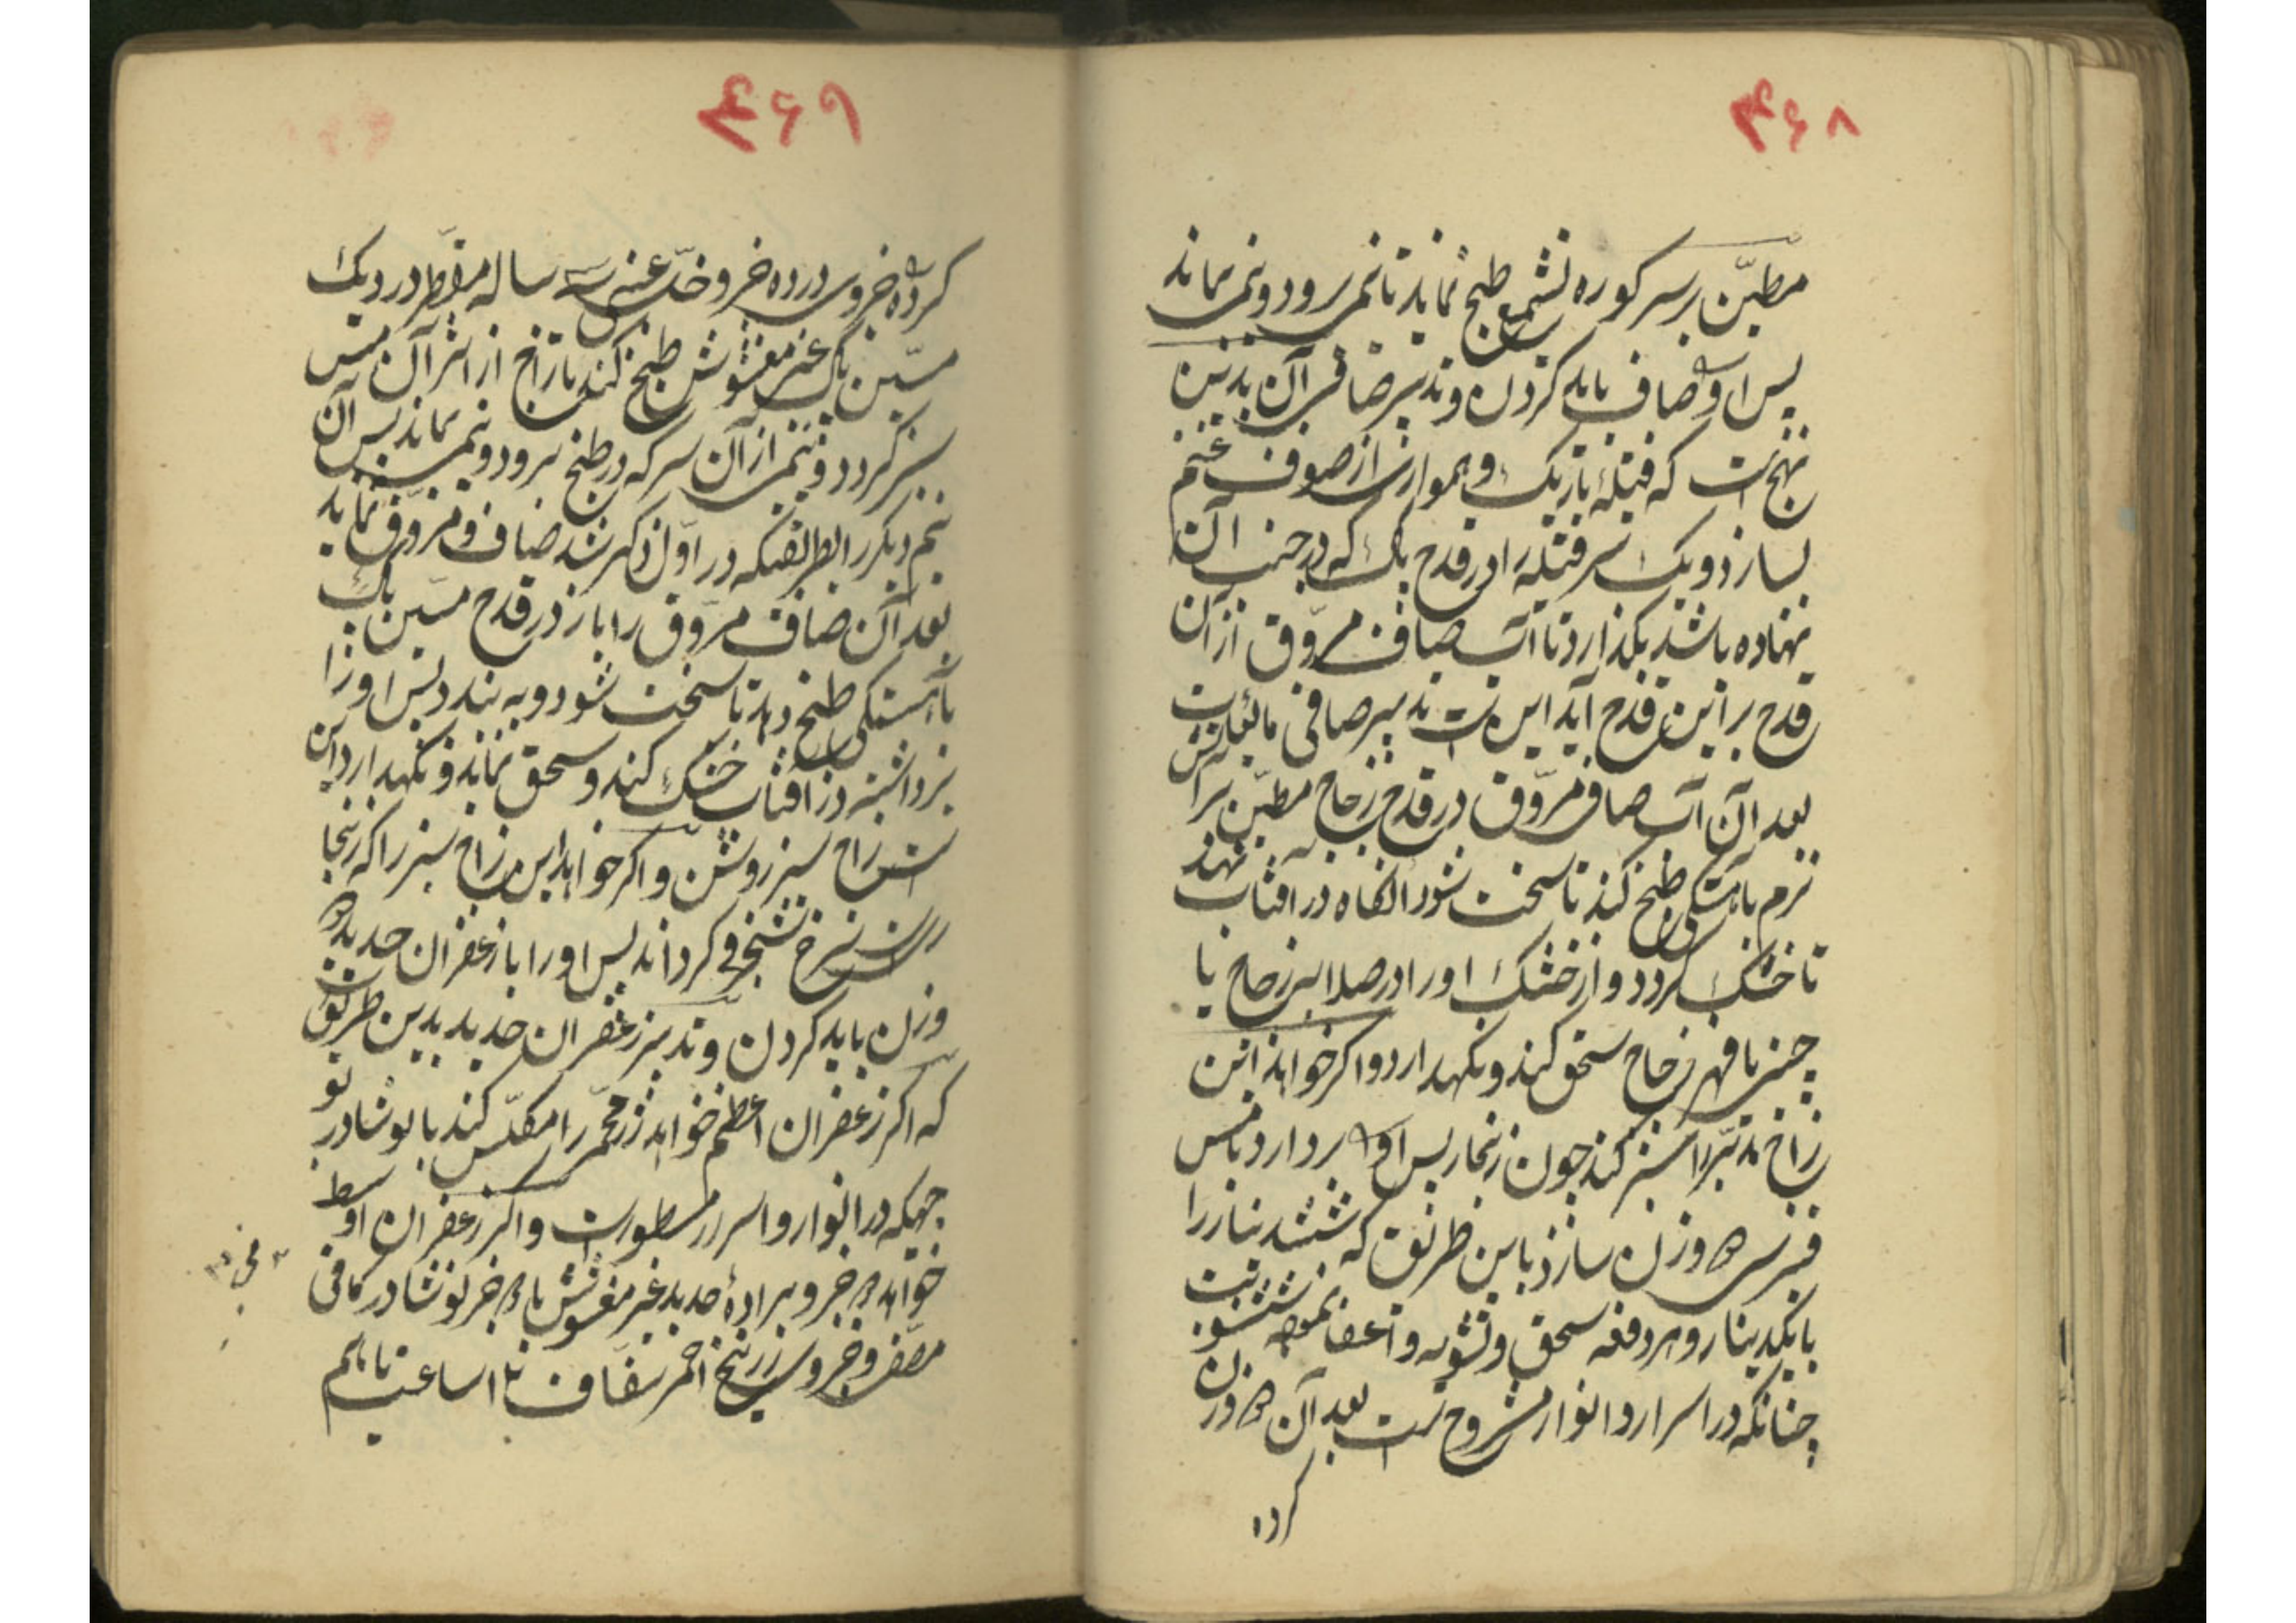 ۴۶۸
مطیّن بر سر کوره نشمع طبخ نماید تا نیمی برود و نیمی بماند
پس او صاف باید کردن و تدبیر صافی آن بدین
نهج است که فتیله باریک و هموار از صوف غنم
بسازد و یک سر فتیله را در قدح پاک که در جنب آن
نهاده باشد بگذارد تا آب صافی مروّق از آن
قدح بر این قدح آید این است تدبیر صافی مایعات
بعد از آن آب صافی مروّق در قدح زجاج مطیّن بر آتش
نرم باهستگی طبخ کند تا سخت شود آنگاه در آفتاب نهد
تا خشک گردد و از خشک او را در صلابه زجاج یا
چینی با فهر زجاج سحق کند و نگهدارد و اگر خواهد این
زاخ مدبّر را سبز کند چون زنجار پس او بردارد با مس
قبرسی وزن سازد باین طریق که شش دینار را
با یکدینار و هر دفعه سحق و تشویه و
چنانکه در اسرار و انوار مشروح است بعد آن وزن
کرده
۴۶۹
کرده جزوی در ده جزو خلّ عنبی سه ساله مقطر در دیک
مسّین پاک غیر مغشوش طبخ کند تا زاخ از اثر آن مس
سبز گردد و نیمی از آن سرکه در طبخ برود و نیمی بماند پس آن
نیم دیگر را بطریقیکه در اوّل ذکر شد صاف و مروّق نماید
بعد آن صافی مروّق را باز در قدح مسّین پاک
بآهستگی طبخ دهد تا سخت شود و به بندد پس او را
برداشته در آفتاب خشک کند و سحق نماید و نگهدارد این
است زاج سبز روشن و اگر خواهد این زاج سبز را که زنجاریست
سرخ شنجرفی گرداند پس او را با زعفران حدید
وزن باید کردن و تدبیر زعفران حدید بدین طریق است
که اگر زعفران اعظم خواهد زر محمّر را مکلّس کند با نوشادر بو
جهیکه در انوار و اسرار مسطورست و اگر زعفران اوسط
خواهد جزو براده حدید غیر مغشوش با جزو نوشادر کافی
مصفی و جزوی زرنیخ احمر شفّاف ساعت باهم